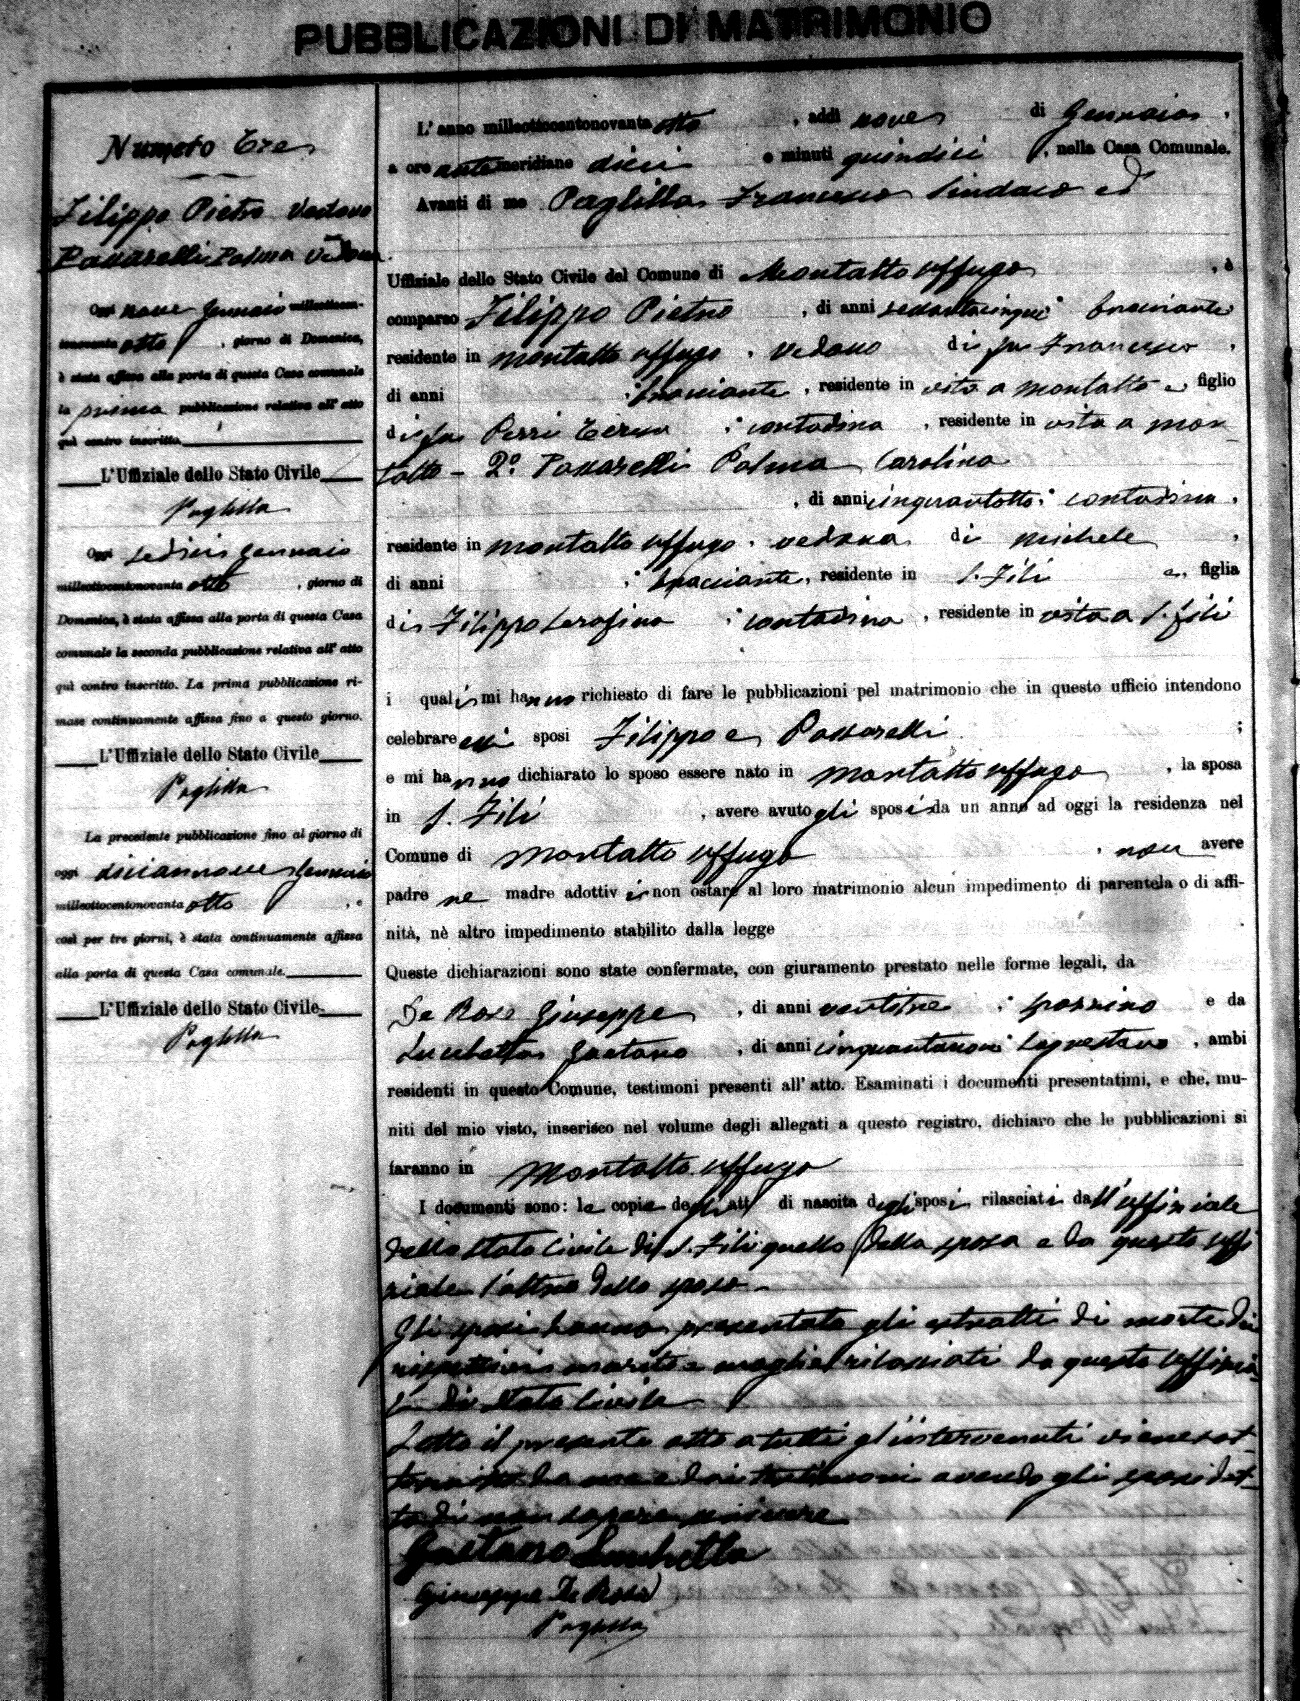 PUBBLICAZIONI DI MATRIMONIO
Numero Tre
Filippo Pietro Vedovo
Passarelli Palma Vedova
Oggi nove Gennaio milleottocen-
tonovanta otto, giorno di Domenica,
è stata affissa alla porta di questa Casa comunale
la prima pubblicazione relativa all'atto
quì contro inscritto
L'Uffiziale dello Stato Civile
Paglilla
Oggi sedici Gennaio
milleottocentonovanta otto, giorno di
Domenica, è stata affissa alla porta di questa Casa
comunale la seconda pubblicazione relativa all'atto
quì contro inscritto. La prima pubblicazione ri-
mase continuamente affissa fino a questo giorno.
L'Uffiziale dello Stato Civile
Paglilla
La precedente pubblicazione fino al giorno di
oggi diciannove Gennaio
milleottocentonovanta otto, e
così per tre giorni, è stata continuamente affissa
alla porta di questa Casa comunale.
L'Uffiziale dello Stato Civile
Paglilla
L'anno milleottocentonovanta otto, addì nove di Gennaio,
a ore antemeridiane dieci e minuti quindici, nella Casa Comunale.
Avanti di me Paglilla Francesco Sindaco ed
Uffiziale dello Stato Civile del Comune di Montalto Uffugo, è
comparso Filippo Pietro, di anni sessantacinque, bracciante
residente in Montalto Uffugo, vedovo di fu Francesco,
di anni , bracciante, residente in vita a Montalto e figlio
di fu Perri Teresa, contadina, residente in vita a Mon-
talto - 2º Passarelli Palma Carolina
, di anni cinquantotto, contadina,
residente in Montalto Uffugo, vedova di Michele,
di anni , bracciante, residente in S. Fili e, figlia
di Filippo Serafina, contadina, residente in vita a S. Fili
i quali mi hanno richiesto di fare le pubblicazioni pel matrimonio che in questo ufficio intendono
celebrare essi sposi Filippo e Passarelli;
e mi hanno dichiarato lo sposo essere nato in Montalto Uffugo, la sposa
in S. Fili, avere avuto gli sposi da un anno ad oggi la residenza nel
Comune di Montalto Uffugo, non avere
padre ne madre adottivi non ostare al loro matrimonio alcun impedimento di parentela o di affi-
nità, nè altro impedimento stabilito dalla legge
Queste dichiarazioni sono state confermate, con giuramento prestato nelle forme legali, da
De Rose Giuseppe, di anni ventitre, spazzino e da
Lucchetta Gaetano, di anni cinquantanove, sagrestano, ambi
residenti in questo Comune, testimoni presenti all'atto. Esaminati i documenti presentatimi, e che, mu-
niti del mio visto, inserisco nel volume degli allegati a questo registro, dichiaro che le pubblicazioni si
faranno in Montalto Uffugo
I documenti sono: le copie degli atti di nascita degli sposi, rilasciati dall'uffiziale
dello stato Civile di S. Fili quello della sposa e da questo uffi
ziale l'altro dello sposo -
Gli sposi hanno presentato gli estratti di morte dei
rispettivi marito e moglie rilasciati da questo Uffizia-
le di Stato Civile
Letto il presente atto a tutti gl'intervenuti viene sot-
toscritto da me e dai testimoni avendo gli sposi det-
to di non sapere scrivere
Gaetano Lucchetta
Giuseppe De Rose
Paglilla